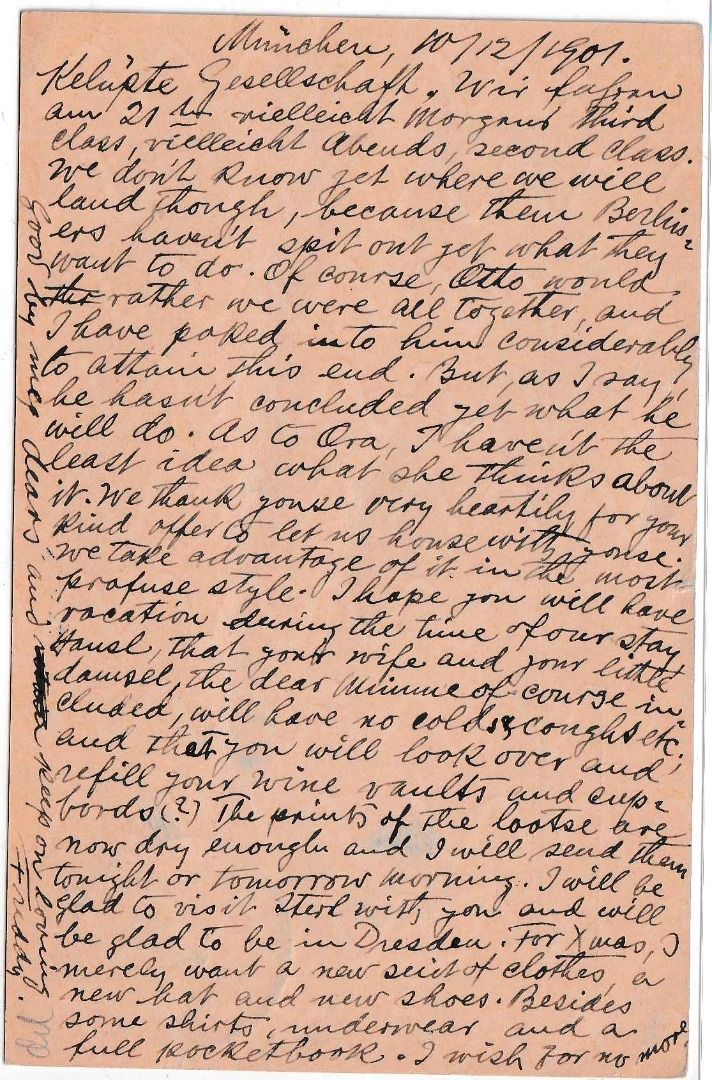 München, 10/12/1901.
Gesellschaft. Wir fahren
am 21 vielleicht Morgens third
class, vielleicht Abends, second class.
We don't know yet where we will
land though, because them Berlin=
ers haven't spit out yet what they
want to do. Of course, Otto would
rather we were all together, and
I have poked into him considerably
to attain this end. But, as I say,
he hasn't concluded yet what he
will do. As to Ora, I haven't the
least idea what she thinks about
it. We thank youse very heartily for your
kind offer to let us house with youse.
We take advantage of it in the most
profuse style. I hope you will have
vacation during the time of our stay,
Hansl, that your wife and your little
damsel, the dear Mimme of course in=
cluded, will have no colds, coughs etc;
and that you will look over and
refill your wine vaults and cup=
bords (?) The prints of the lootse are
now dry enough and I will send them
tonight or tomorrow morning. I will be
glad to visit Sterl with you and will
be glad to be in Dresden. For Xmas, I
merely want a new suit of clothes, a
new hat and new shoes. Besides
some shirts, underwear and a
full pocketbook. I wish for no more.
Good by mer dears and keep on loving
Freddy.